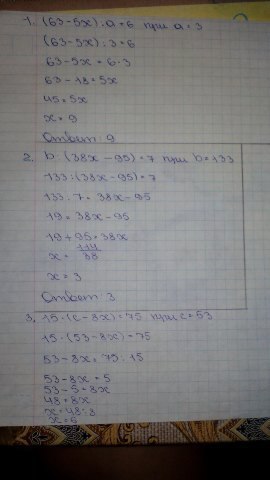 1. (63-5x):a=6 при a=3
(63-5x):3=6
63-5x=6·3
63-18=5x
45=5x
x=9
Ответ: 9
2. b:(38x-95)=7 при b=133
133:(38x-95)=7
133:7=38x-95
19=38x-95
19+95=38x
x=114/38
x=3
Ответ: 3
3. 15·(c-8x)=75 при c=53
15·(53-8x)=75
53-8x=75:15
53-8x=5
53-5=8x
48=8x
x=48:8
x=6